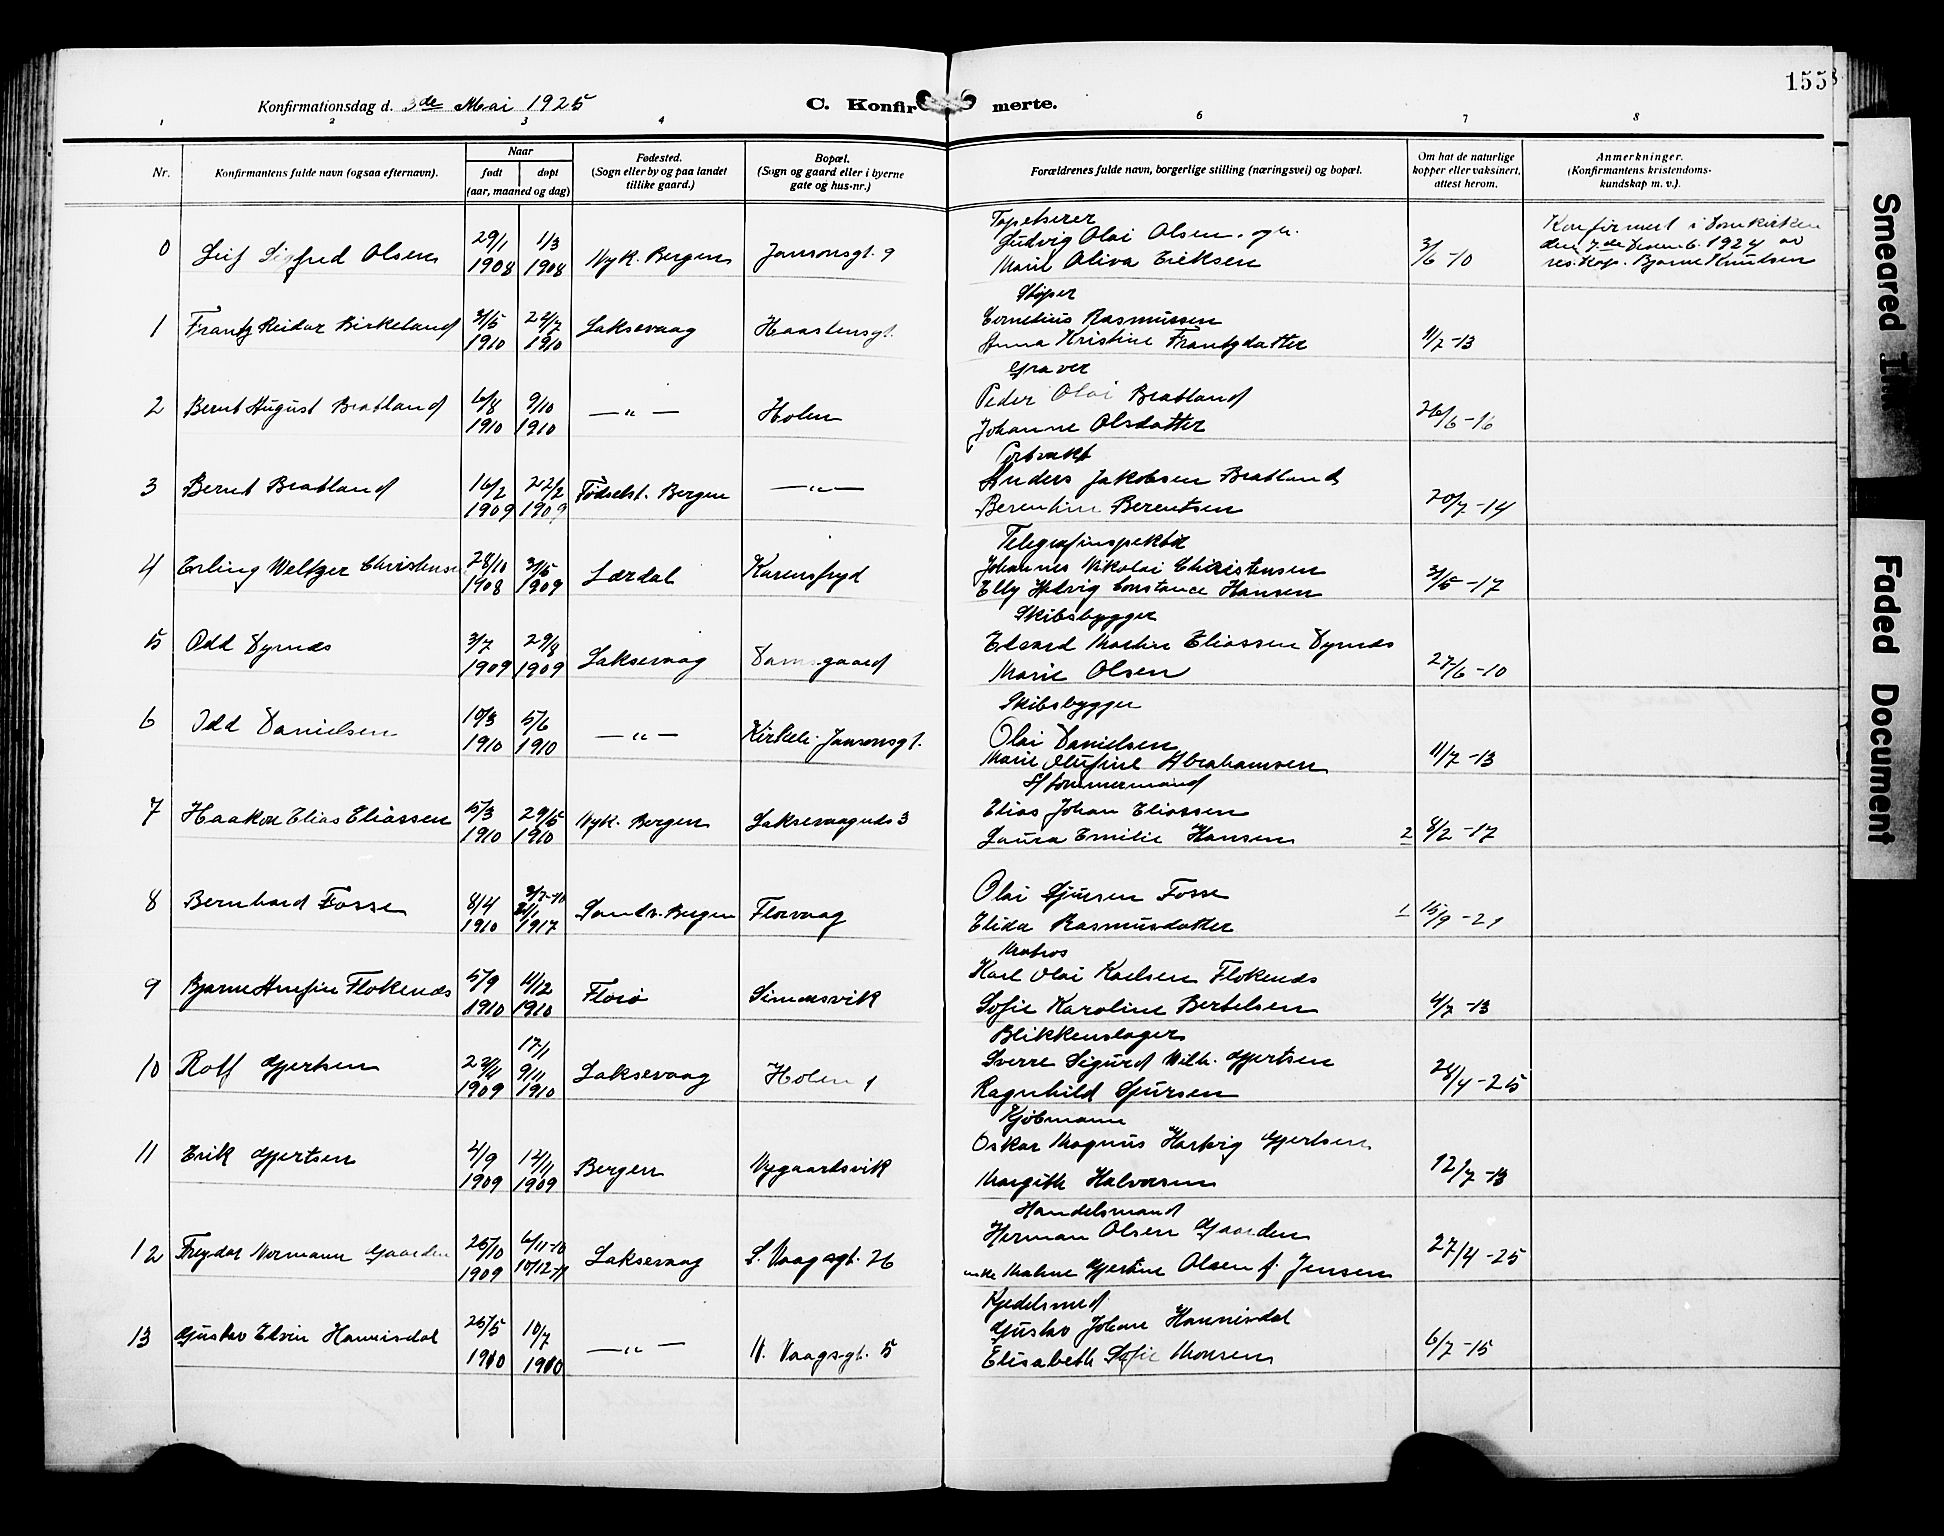 155
Konfirmationsdag d. 3de Mai 1925
C. Konfirmerte.
1 2 3 4 5 6 7 8
Nr.
Konfirmantens fulde navn (ogsaa efternavn).
Naar
født døpt
(aar, maaned og dag)
Fødested.
(Sogn eller by og paa landet
tillike gaard.)
Bopæl.
(Sogn og gaard eller i byerne
gate og hus-nr.)
Forældrenes fulde navn, borgerlige stilling (næringsvei) og bopæl.
Om hat de naturlige
kopper eller vaksinert,
attest herom.
Anmerkninger.
(Konfirmantens kristendoms-
kundskap m. v.).
Tapetserer
0 Leif Sigfred Olsen 29/1 1908 1/3 1908 Nyk. Bergen Jansonsgt. 9 Ludvig Olai Olsen. og h.
Marie Oliva Eriksen 3/6 -10
Konfirmert i Domkirken
den 7de Decem b. 1924 av
res. kap. Bjarne Knutsen
Støper
1 Frantz Reidar Birkeland 31/5 1910 24/7 1910 Laksevaag Haastensgt. Cornelius Rasmussen
Anna Kristine Frantzdatter 11/7 -13
Graver
2 Bernt August Bratland 6/8 1910 9/10 1910 —„— Holen Peder Olai Bratland
Johanne Olsdatter 26/6 -16
Portvakt
3 Bernt Bratland 16/2 1909 22/2 1909 Fødselst. Bergen —„— Anders Jakobsen Bratland
Berentine Berentsen 20/7 -14
Telegrafinspektør
4 Erling Weltzer Christensen 28/10 1908 31/5 1909 Lærdal Karensfryd Johannes Nikolai Christensen
Elly Hedvig Constance Hansen 31/5 -17
Skibsbygger
5 Odd Dyrnds 3/7 1909 29/8 1909 Laksevaag Damsgaard Edvard Martin Eliassen Dyrnds
Marie Olsen 27/6 -10
Skibsbygger
6 Odd Danielsen 10/3 1910 5/6 1910 —„— Kirkeli Jansonsgt. Olai Danielsen
Marie Olufine Abrahamsen 11/7 -13
S/tømmermand
7 Haakon Elias Eliassen 5/3 1910 29/5 1910 Nyk. Bergen Laksevaagnds 3 Elias Johan Eliassen
Laura Emilie Hansen 2 8/2 -17
8 Bernhard Fosse 8/4 1910 3/7-10 21/1 1917 Sandv. Bergen Florvaag Olai Sjursen Fosse
Elida Rasmusdatter 1 15/9 -21
Matros
9 Bjarne Arnfin Flokends 5/9 1910 11/12 1910 Florø Simonsvik Karl Olai Karlsen Flokends
Sofie Karoline Bertelsen 4/7 -13
Blikkenslager
10 Rolf Gjertsen 23/4 1909 17/1 9/11 1910 Laksevaag Holen 1 Sverre Sigurd Wilh. Gjertsen
Ragnhild Sjursen 28/4 -25
Kjøbmann
11 Erik Gjertsen 4/9 1909 14/11 1909 Bergen Nygaardsvik Oskar Magnus Hartvig Gjertsen
Margith Halvorsen 12/7 -13
Handelsmand
12 Freydar Normann Gaarden 25/10 1909 6/11-10 10/12-11 Laksevaag S. Vaagsgt. 26 Herman Olsen Gaarden
enke Malene Gjertine Olsen f. Jensen 27/4 -25
Kjedelsmed
13 Gustav Edvin Hannisdal 25/5 1910 10/7 1910 —„— N. Vaagsgt. 5 Gustav Johan Hannisdal
Elisabeth Sofie Monsen 6/7 -15
Smeared Ink
Faded Document